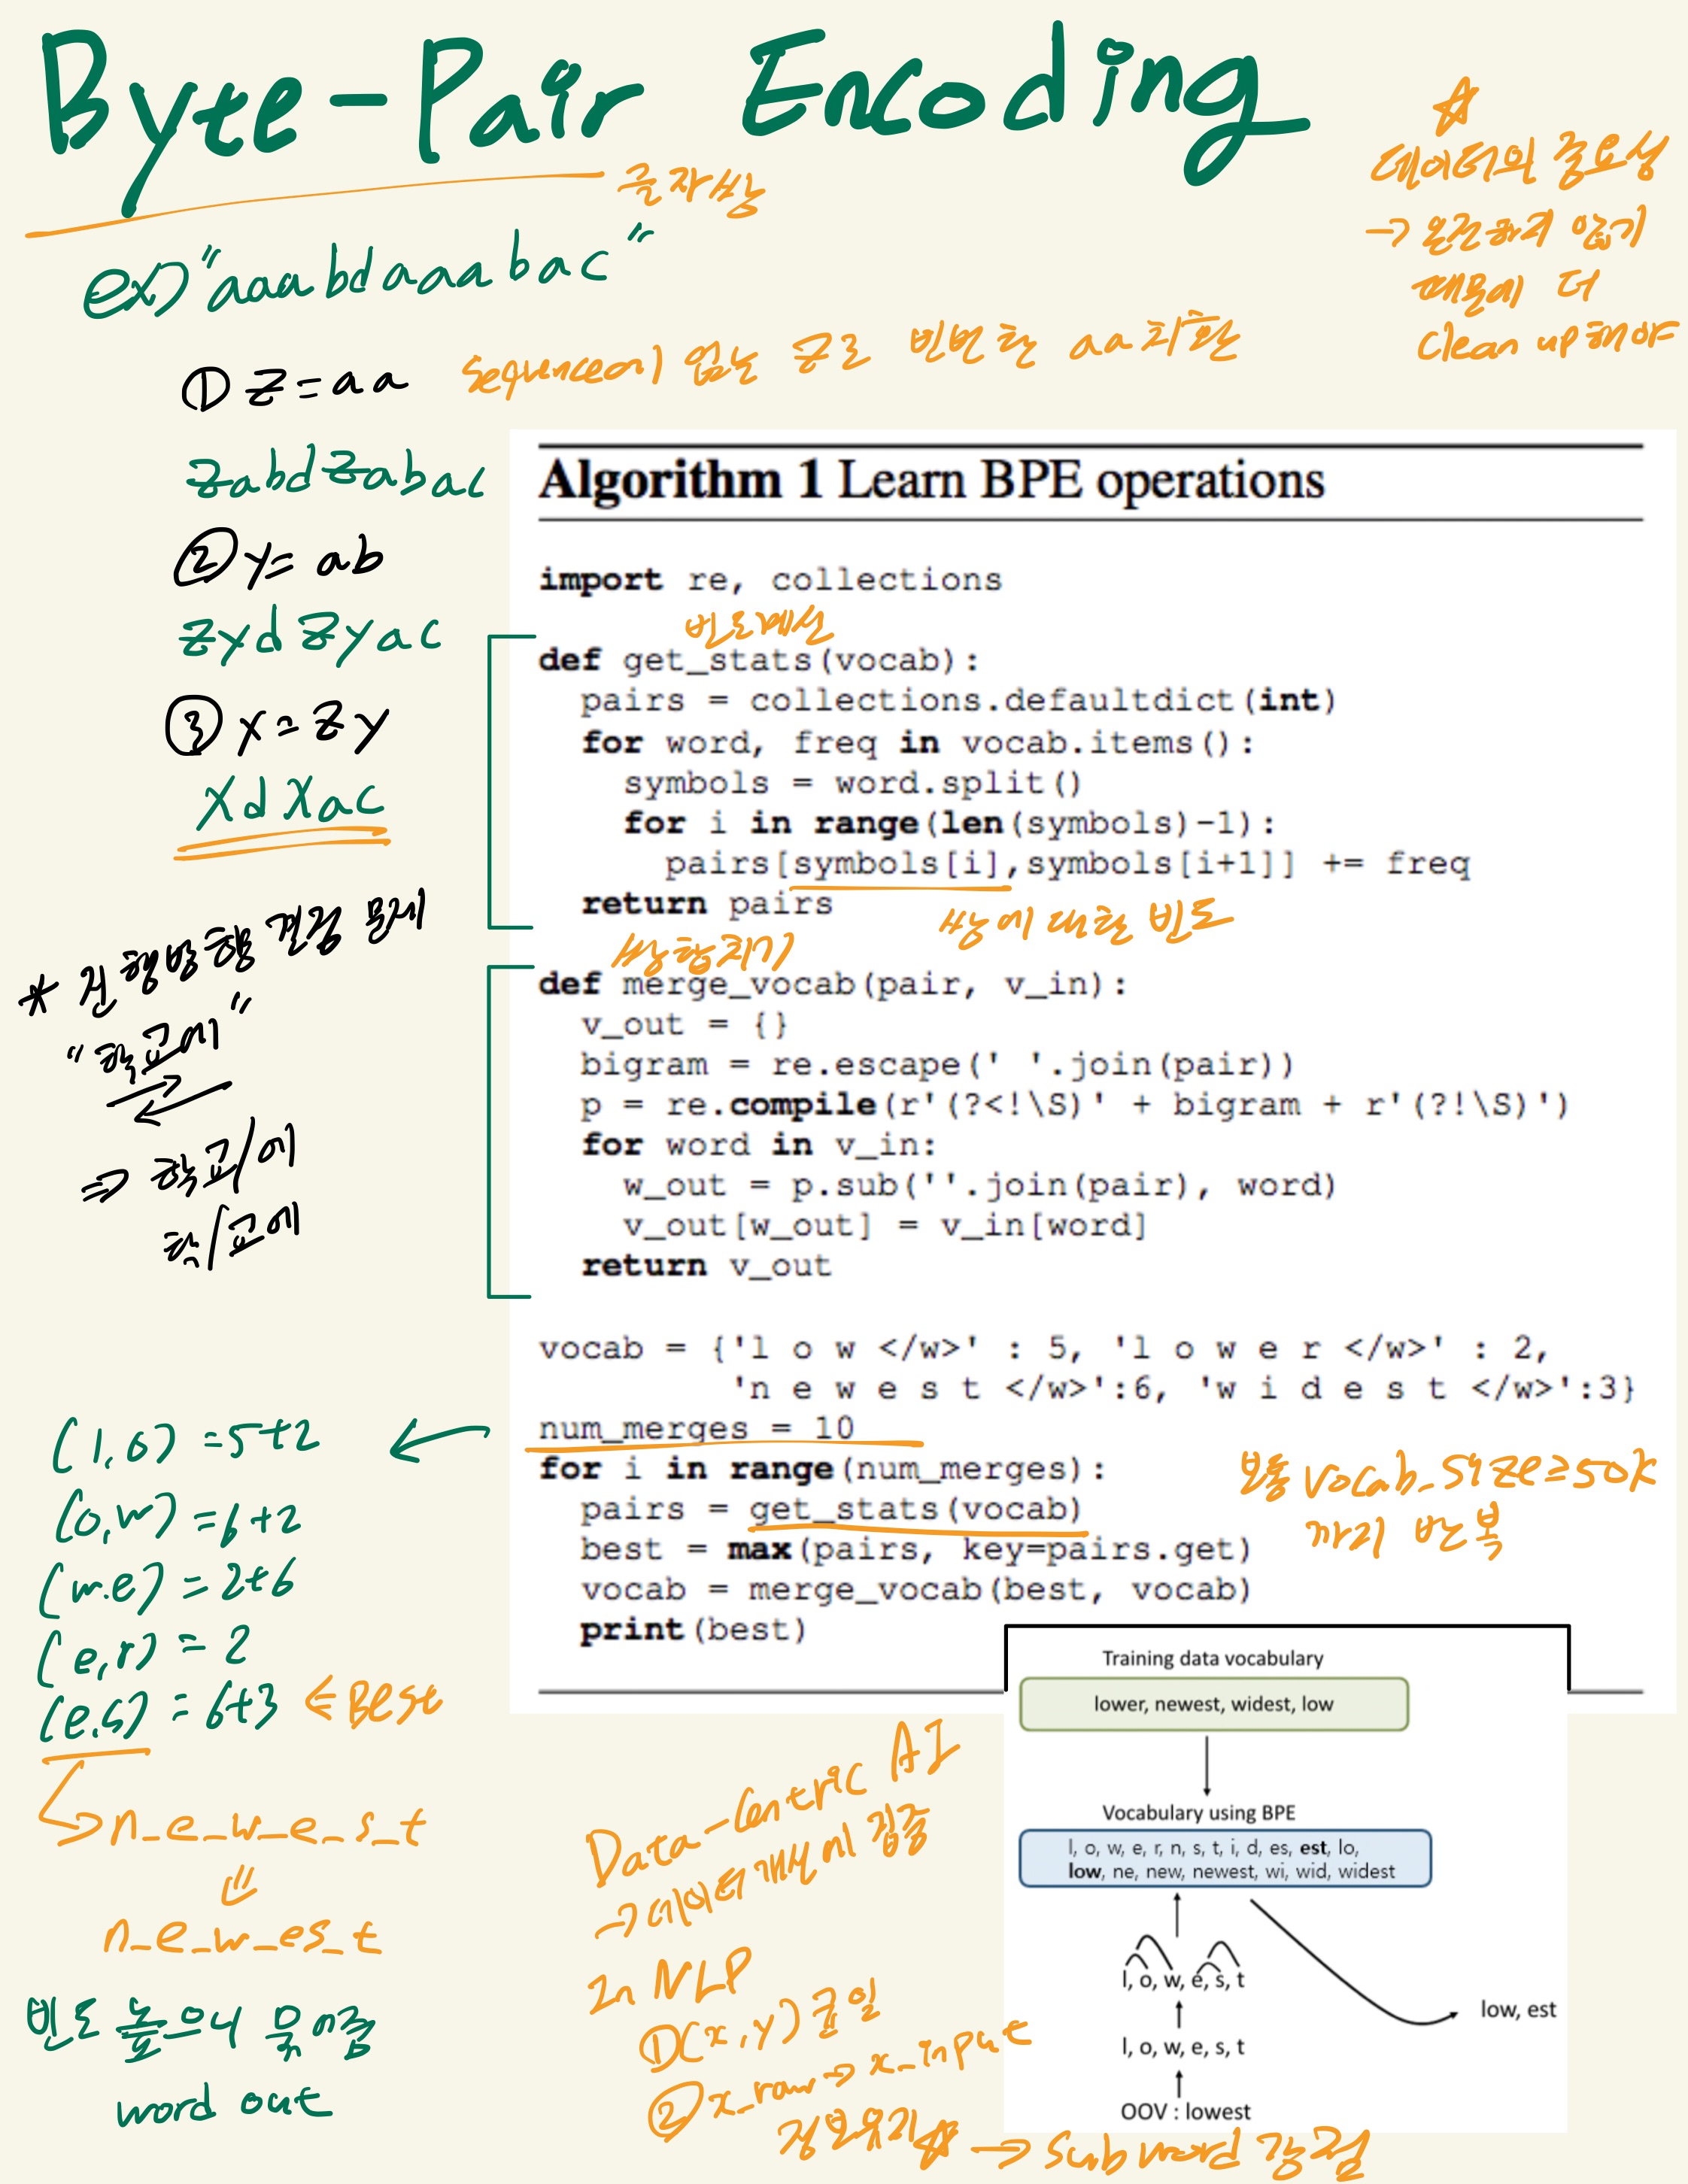 Byte-Pair Encoding
글자쌍
☆
데이터의 중요성
→ 온전하지 않기
때문에 더
clean up 해야
ex) "aaabdaaabac"
① Z=aa
sequence에 없는 Z로 빈번한 aa 치환
ZabdZabac
② y=ab
ZydZyac
③ X=Zy
XdXac
* 진행방향 결정 문제
"학교에"
⇒ 학교/에
학/교에
Algorithm 1 Learn BPE operations
import re, collections
빈도계산
def get_stats(vocab):
pairs = collections.defaultdict(int)
for word, freq in vocab.items():
symbols = word.split()
for i in range(len(symbols)-1):
pairs[symbols[i],symbols[i+1]] += freq
return pairs
쌍에 대한 빈도
쌍합치기
def merge_vocab(pair, v_in):
v_out = {}
bigram = re.escape(' '.join(pair))
p = re.compile(r'(?<!\S)' + bigram + r'(?!\S)')
for word in v_in:
w_out = p.sub(''.join(pair), word)
v_out[w_out] = v_in[word]
return v_out
vocab = {'l o w </w>' : 5, 'l o w e r </w>' : 2,
'n e w e s t </w>':6, 'w i d e s t </w>':3}
num_merges = 10
for i in range(num_merges):
pairs = get_stats(vocab)
best = max(pairs, key=pairs.get)
vocab = merge_vocab(best, vocab)
print(best)
보통 vocab_size≥50k
까지 반복
(l,o) =5+2 ←
(o,w) =6+2
(w.e) = 2+6
(e,r) = 2
(e.s) = 6+3 ⇐ BEST
n_e_w_e_s_t
n_e_w_es_t
빈도 높으니 묶어줌
word out
Data-Centric AI
→ 데이터 개선에 집중
In NLP
① (x,y) 균일
② x_raw → x_input
정보유지☆ → Subword 강점
Training data vocabulary
lower, newest, widest, low
Vocabulary using BPE
l, o, w, e, r, n, s, t, i, d, es, est, lo,
low, ne, new, newest, wi, wid, widest
l, o, w, e, s, t
low, est
l, o, w, e, s, t
OOV : lowest